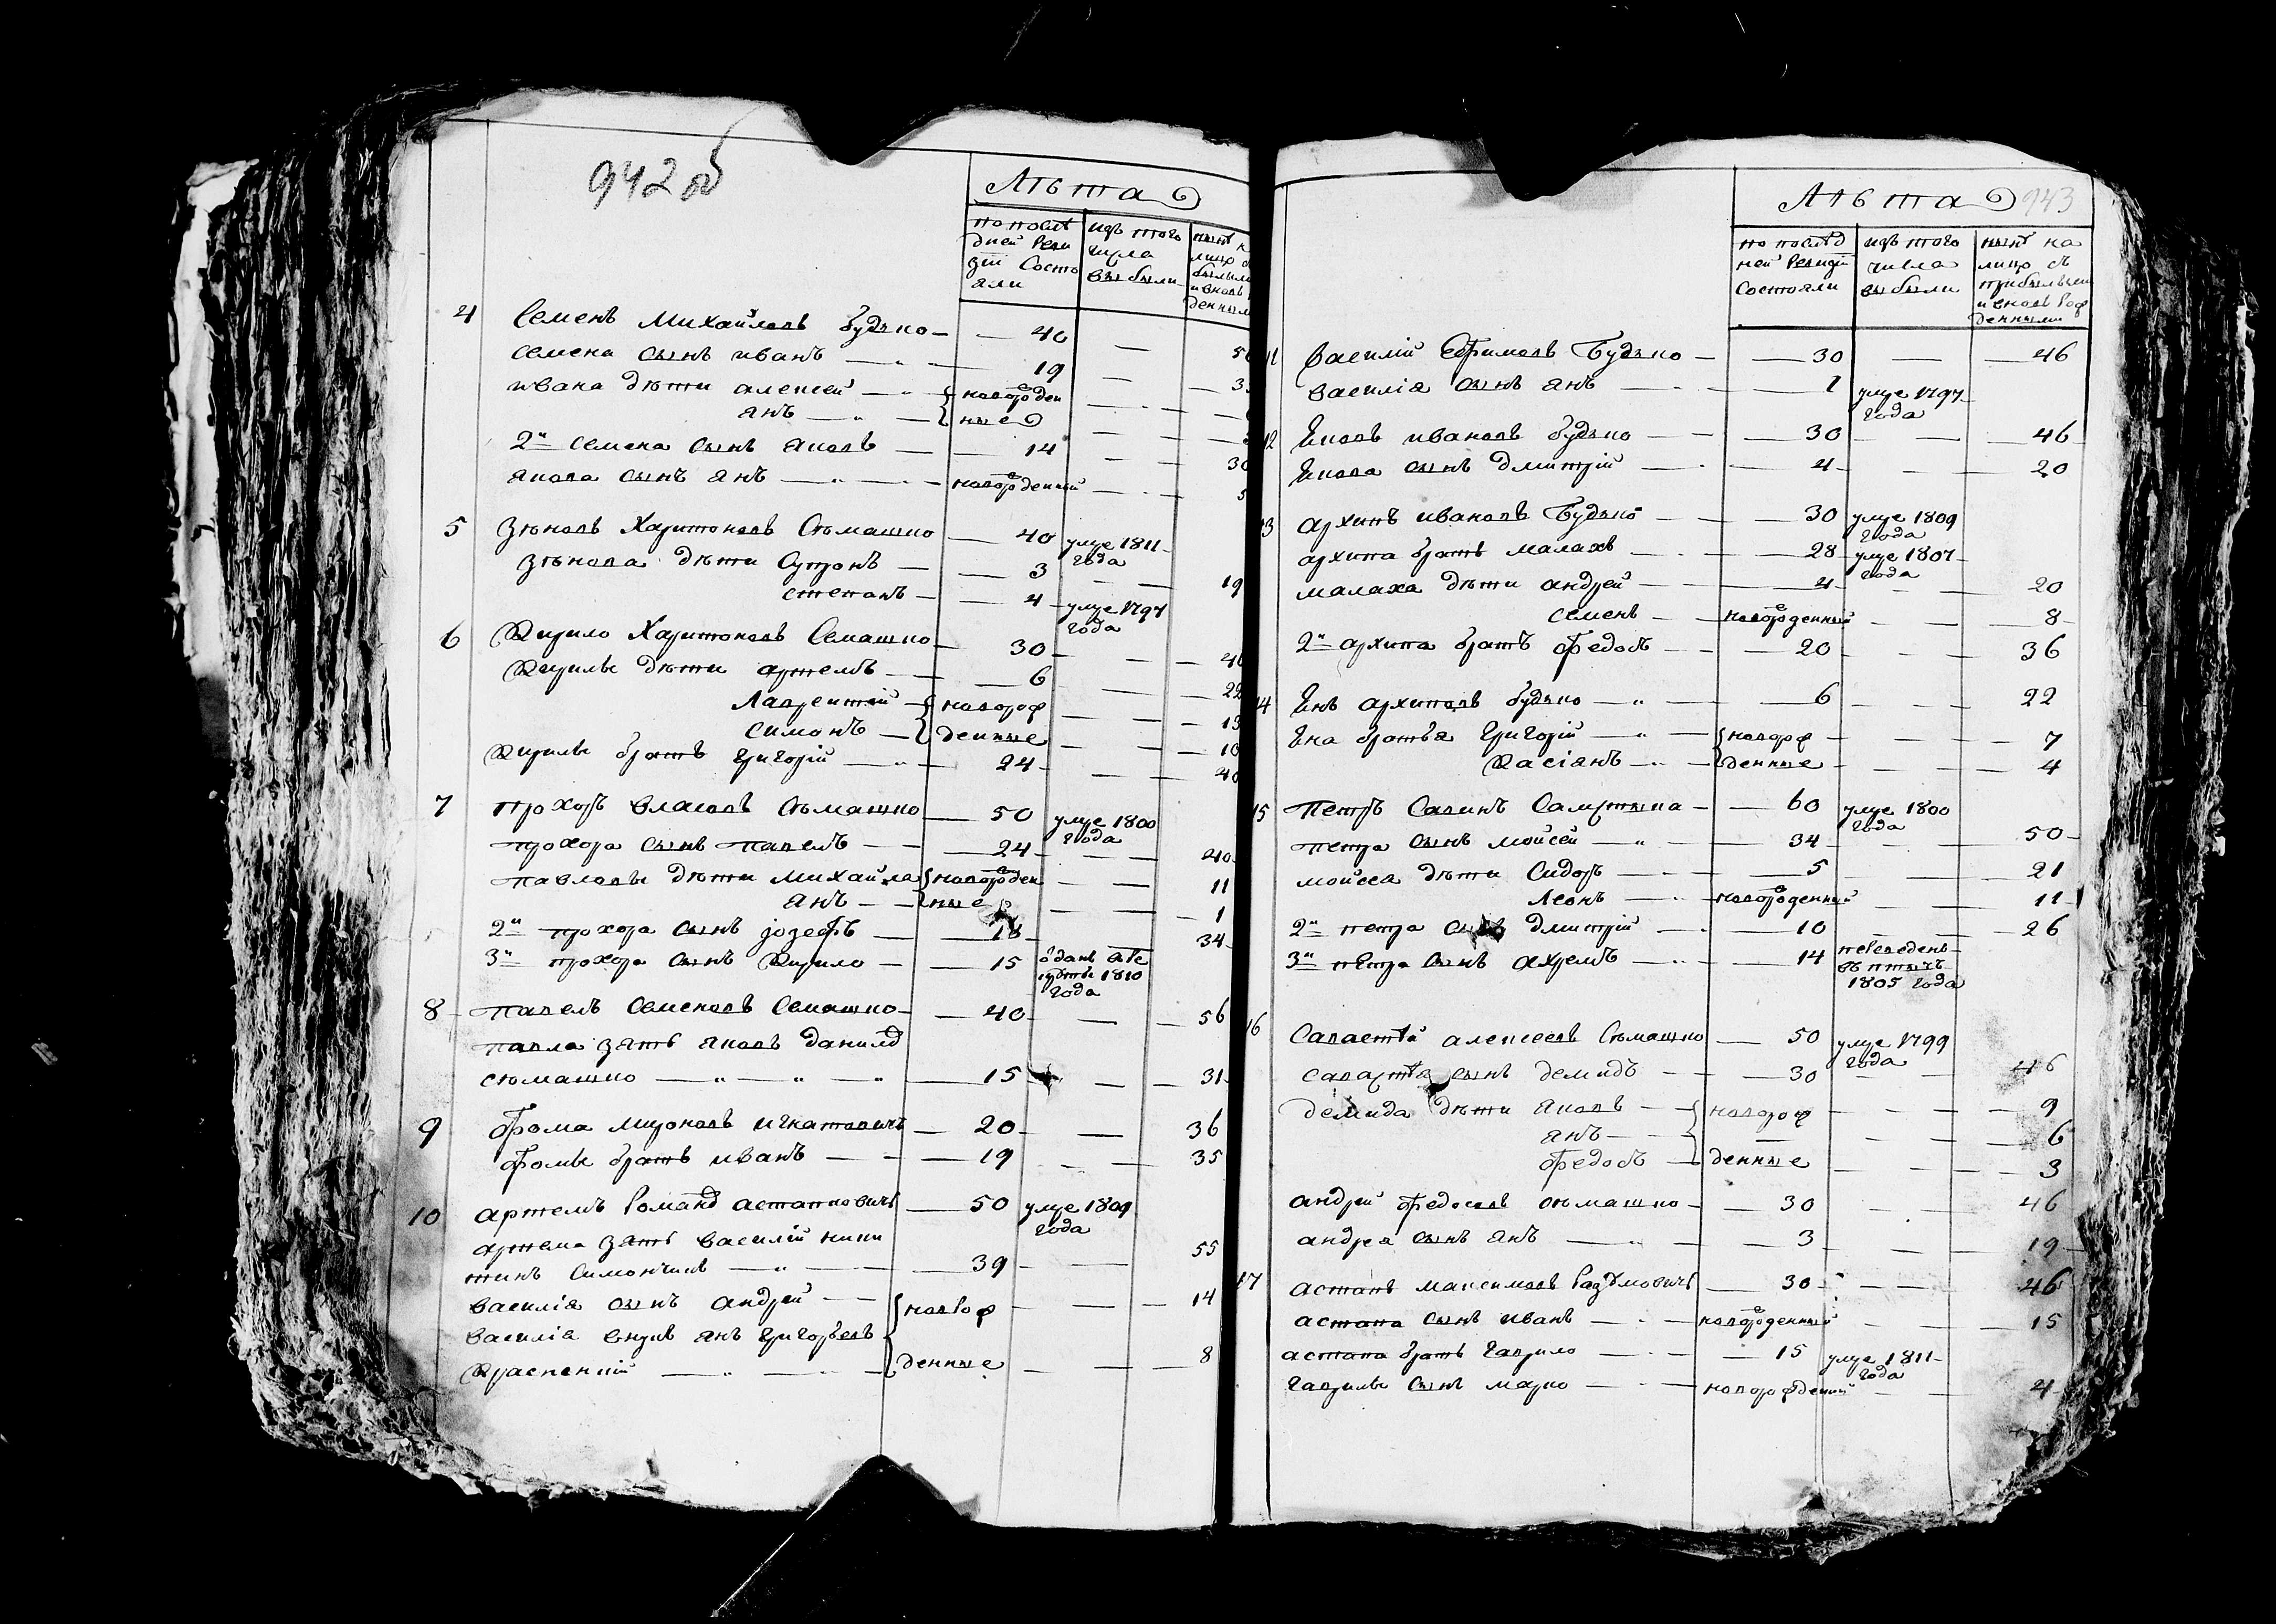 942 об
Лѣта
по послѣ
дней Реви
зіи Состо
яли
изъ того
числа
выбыли
нынѣ н
лицо с
былыми
и вновь
денным
4 Семенъ Михайловъ будько — 40 — 5
Семена сынъ иванъ — 19 — 3
ивана дѣти алексей — новорожден
янъ — ные
2й семена сынъ яковъ — 14 — 30
якова сынъ янъ — новорожденный — 5
5 Зѣновъ Харитоновъ Сѣмашко — 40 умре 1811
года
Зѣнова дѣти Супронъ — 3 — 19
степанъ — 4 умре 1797
года
6 Кирило Харитоновъ Семашко — 30 — 46
Кирилы дѣти артемъ — 6 — 22
Лаврентій — новорож — 13
Симонъ — денные — 10
Кирилы братъ григорій — 24 — 40
7 Прохоръ власовъ Сѣмашко — 50 умре 1800
года
прохора сынъ павелъ — 24 — 40
павловы дѣти Михайла новорожден — 11
янъ — ные — 1
2й прохора сынъ іозефъ — 18 — 34
3й прохора сынъ Кирило — 15 оданъ в ре
круты 1810
года
8 павелъ Семеновъ Семашко — 40 — 56
павла зять яковъ данилов
сѣмашко — 15 — 31
9 Фома мироновъ игнатовичъ — 20 — 36
Фомы братъ иванъ — 19 — 35
10 артемъ Романов астапковичъ — 50 умре 1809
года
артема зять василій ники
тинъ Симончикъ — 39 — 55
василія сынъ андрей — новрож — 14
василія внукъ янъ григорьевъ
Краскевичъ — денные — 8
943
Лѣта
по послѣд
ней Ревизіи
Состояли
изъ того
числа
выбыли
нынѣ на
лицо съ
прибылыми
и вновь Рож
денными
11 василій Ефимовъ Будько — 30 — 46
василія сынъ янъ — 1 умре 1797
года
12 Яковъ ивановъ будько — 30 — 46
Якова сынъ дмитрій — 4 — 20
13 архипъ ивановъ Будько — 30 умре 1809
года
архипа братъ малахъ — 28 умре 1807
года
малаха дѣти андрей — 4 — 20
семенъ — новорожденный — 8
2й архипа братъ Федоръ — 20 — 36
14 Янъ архиповъ будько — 6 — 22
Яна братья григорій — новорож — 7
Касіянъ — денные — 4
15 Петръ Савинъ Самутыка — 60 умре 1800
года
петра сынъ мойсей — 34 — 50
мойсея дѣти Сидоръ — 5 — 21
Леонъ — новорожденный — 11
2й петра сынъ дмитрій — 10 — 26
3й петра сынъ ахремъ — 14 переведенъ
въ птычъ
1805 года
16 Савастѣй алексеевъ Сѣмашко — 50 умре 1799
года
савастѣя сынъ демидъ — 30 — 46
демида дѣти яковъ — новорож — 9
янъ — 6
Федоръ — денные — 3
андрей Федосовъ сѣмашко — 30 — 46
андрея сынъ янъ — 3 — 19
17 астапъ максимовъ Разумовичъ — 30 — 46
астапа сынъ иванъ — новорожденный — 15
астапа братъ гаврило — 15 умре 1811
года
гаврилы сынъ марко — новорожденый — 4